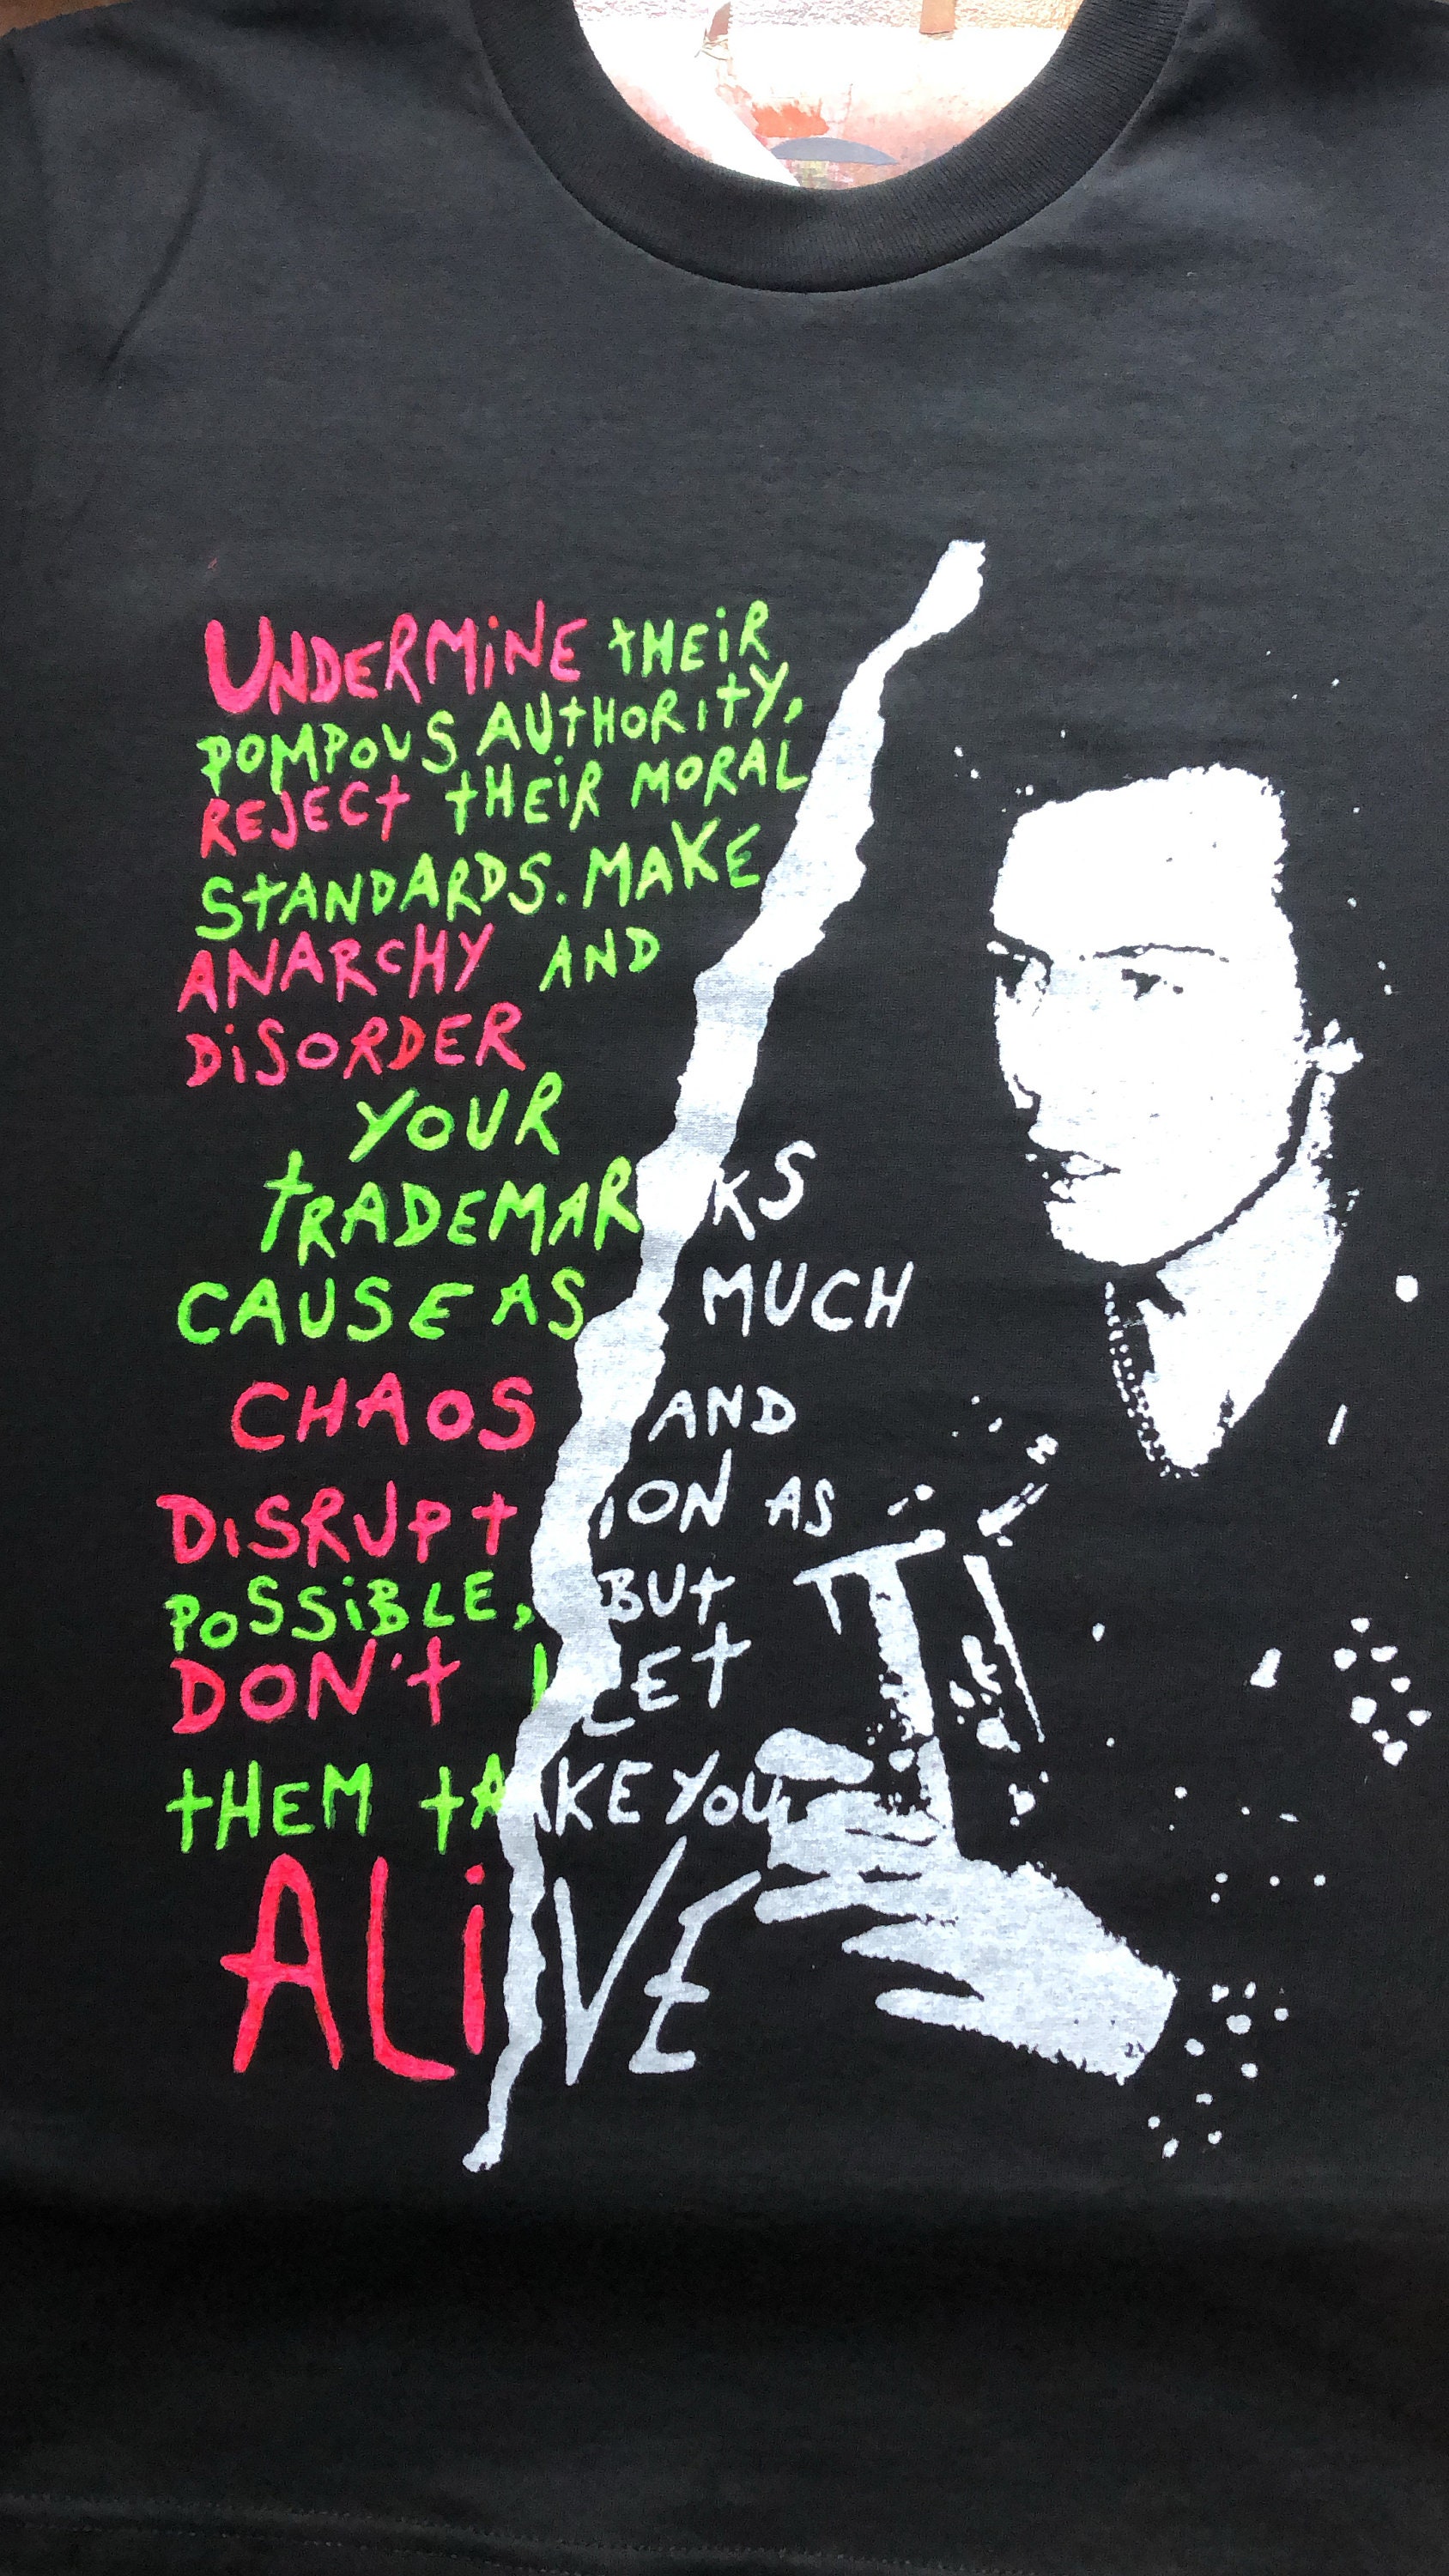 UNDERMINE THEIR
POMPOUS AUTHORITY,
REJECT THEIR MORAL
STANDARDS. MAKE
ANARCHY AND
DISORDER
YOUR
TRADEMARKS
CAUSE AS MUCH
CHAOS AND
DISRUPTION AS
POSSIBLE, BUT
DON'T LET
THEM TAKE YOU
ALIVE